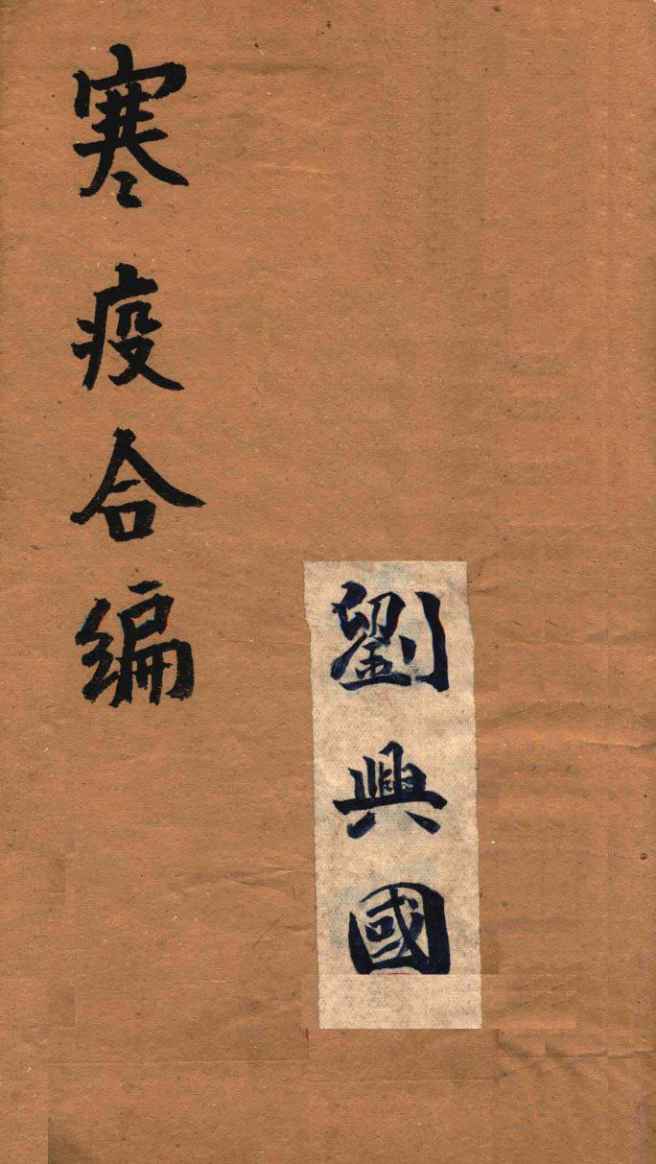 寒疫合编
劉興國